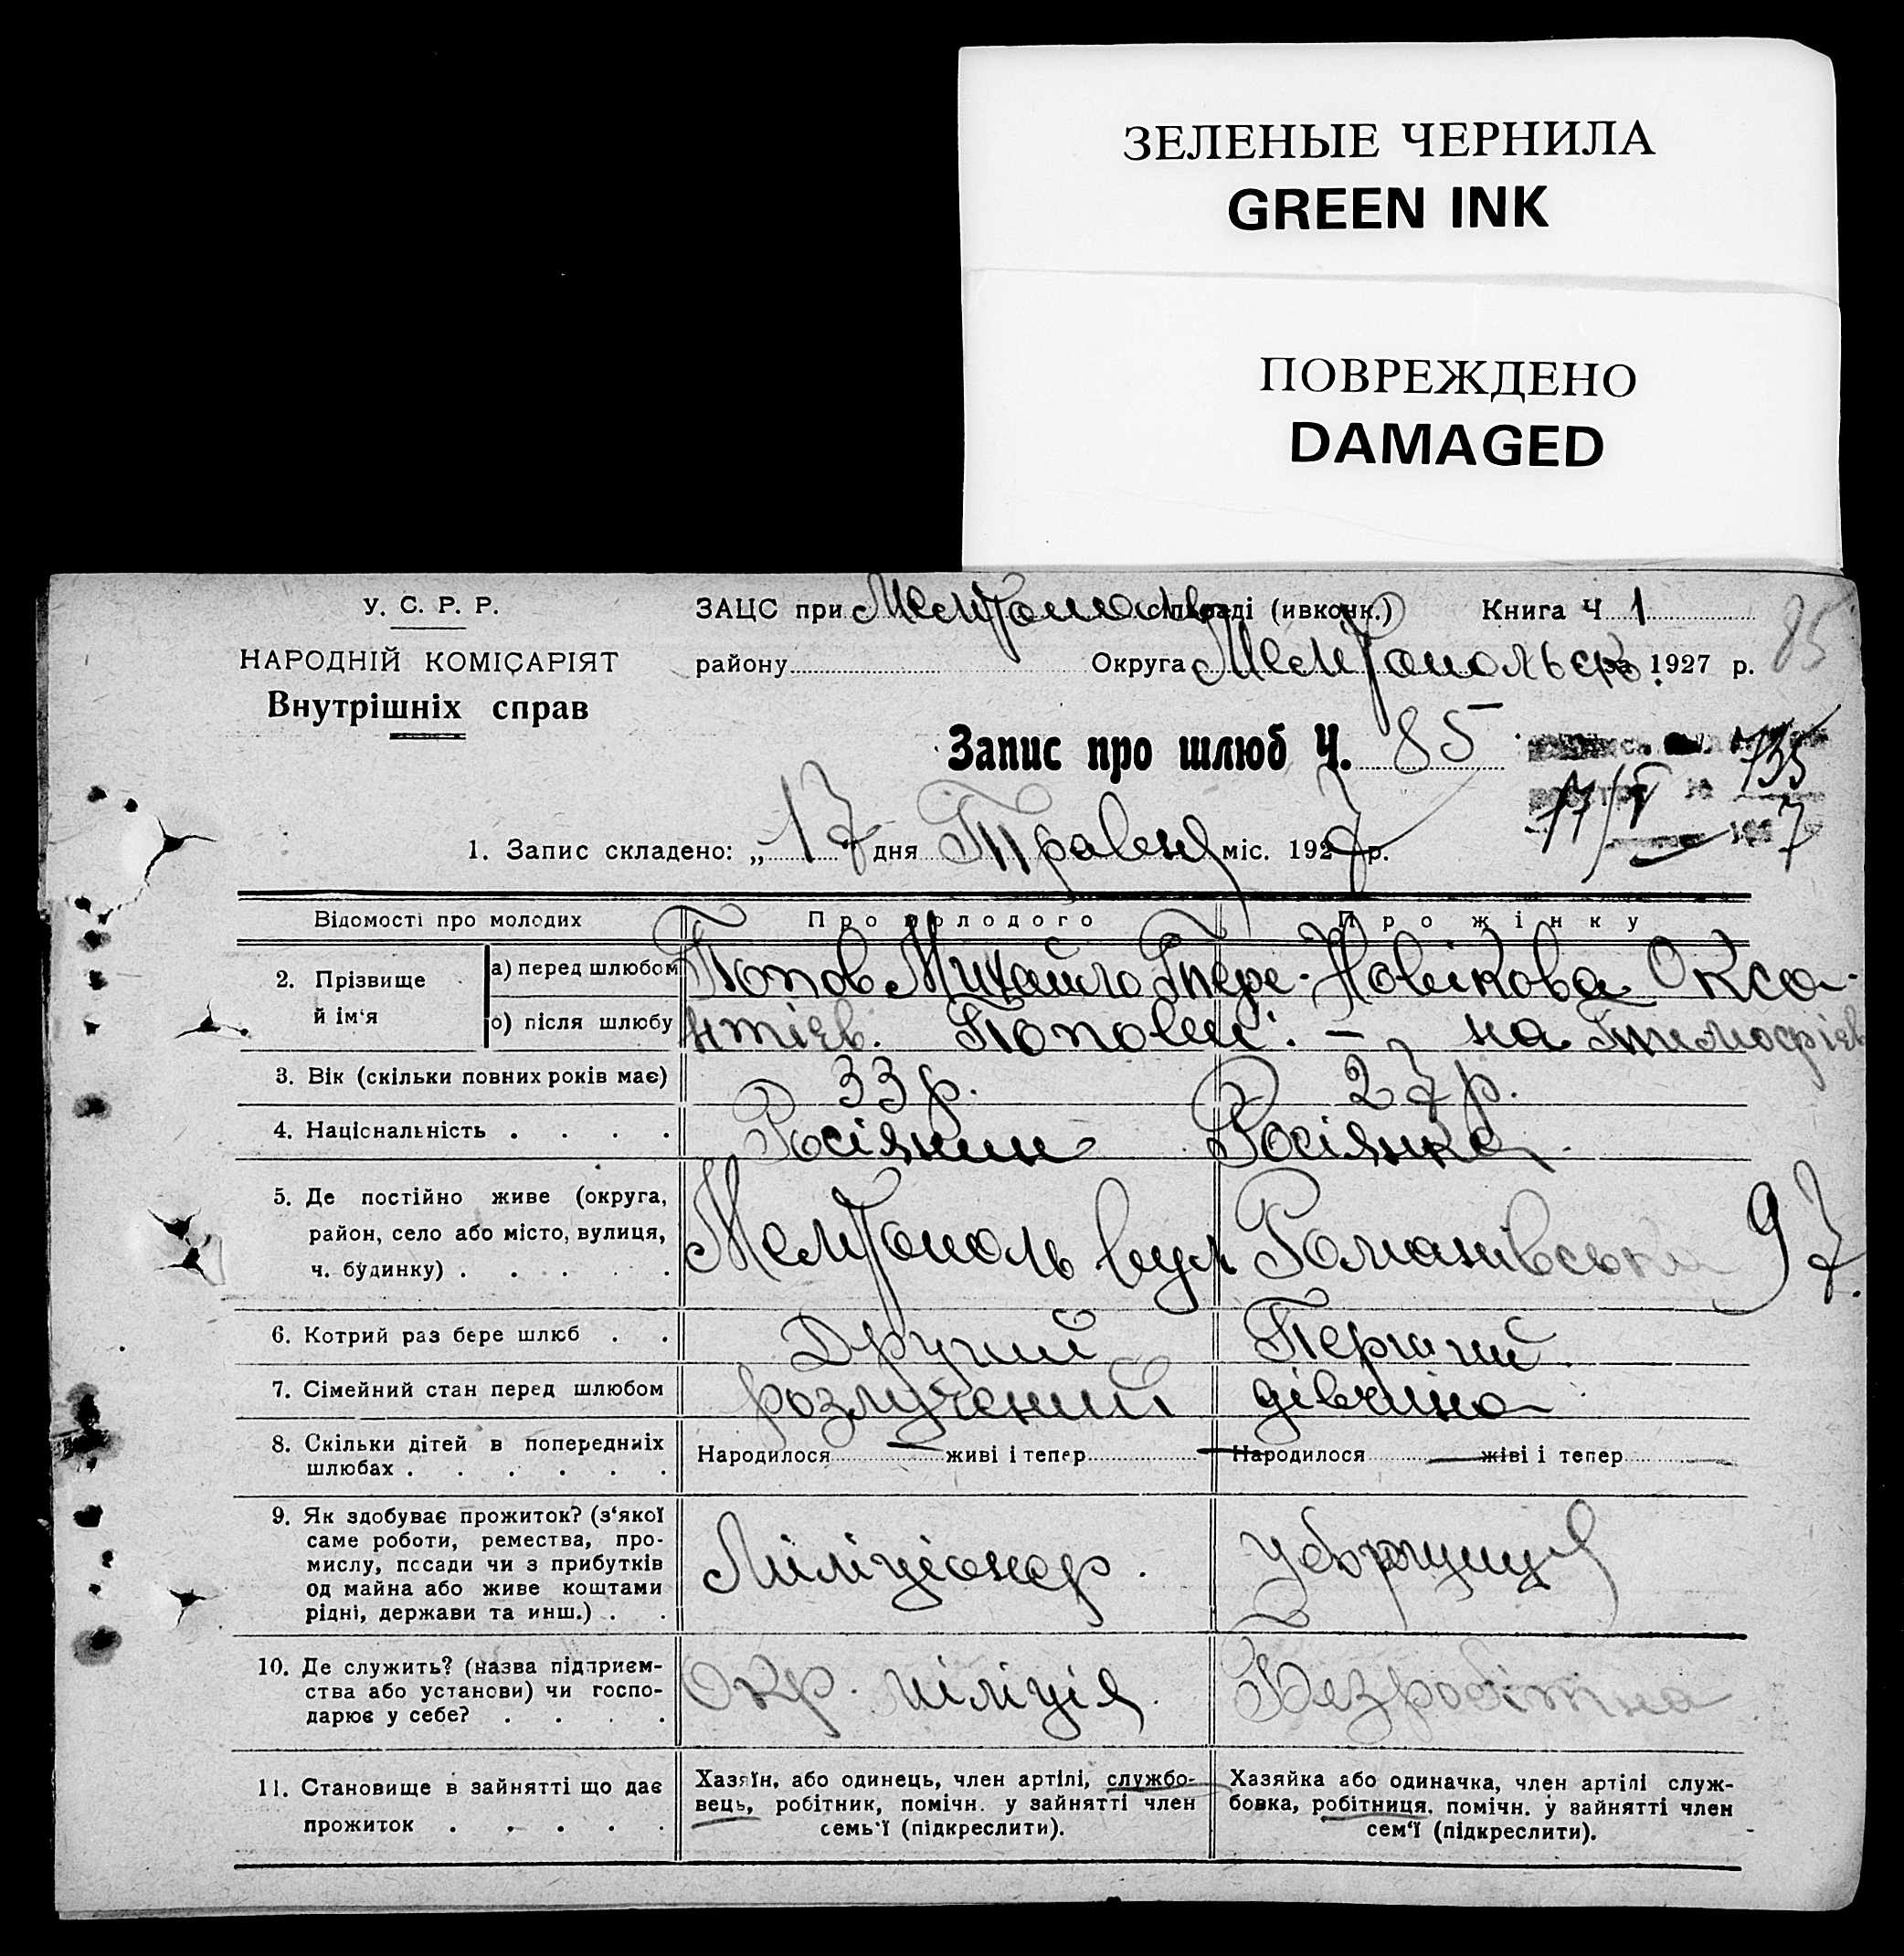 ЗЕЛЕНЫЕ ЧЕРНИЛА
GREEN INK
ПОВРЕЖДЕНО
DAMAGED
У. С. Р. Р.
НАРОДНІЙ КОМІСАРІЯТ
Внутрішніх справ
ЗАЦС при сільраді (ивконк.) Книга Ч 1
району Округа Мелітопольськ. за 1927 р. 85
Запис про шлюб Ч. 85
735
17/V
1927
1. Запис складено: „17" дня Травня міс. 1927 р.
Відомості про молодих Про молодого Про жінку
2. Прізвище й ім'я
а) перед шлюбом Попов Михайло Тере- Новікова Окса-
о) після шлюбу нтієв. Попови. – на Тимофієв
3. Вік (скільки повних років має) 33 р. 27 р.
4. Національність . . . . Росіянин Росіянка.
5. Де постійно живе (округа,
район, село або місто, вулиця, Мелітополь вул Романівська 97.
ч. будинку) . . . . .
6. Котрий раз бере шлюб . . Другий Перший.
7. Сімейний стан перед шлюбом розлучений дівчина
8. Скільки дітей в попередниіх Народилося — живі і тепер — Народилося — жіві і тепер —
шлюбах . . . . . .
9. Як здобуває прожиток? (з'якої
саме роботи, ремества, про-
мислу, пссади чи з прибутків Міліціонер. Уборщиця
од майна або живе коштами
рідні, держави та инш.) . .
10. Де служить? (назва підприєм-
ства або установи) чи госпо- Окр. міліція. Безробітна
дарює у себе? . . . .
11. Становище в зайнятті що дає
прожиток . . . . .
Хазяїн, або одинець, член артілі, службо-
вець, робітник, помічн. у зайнятті член
семь'ї (підкреслити).
Хазяйка або одиначка, член артілі служ-
бовка, робітниця, помічн. у зайнятті член
сем'ї (підкреслити).